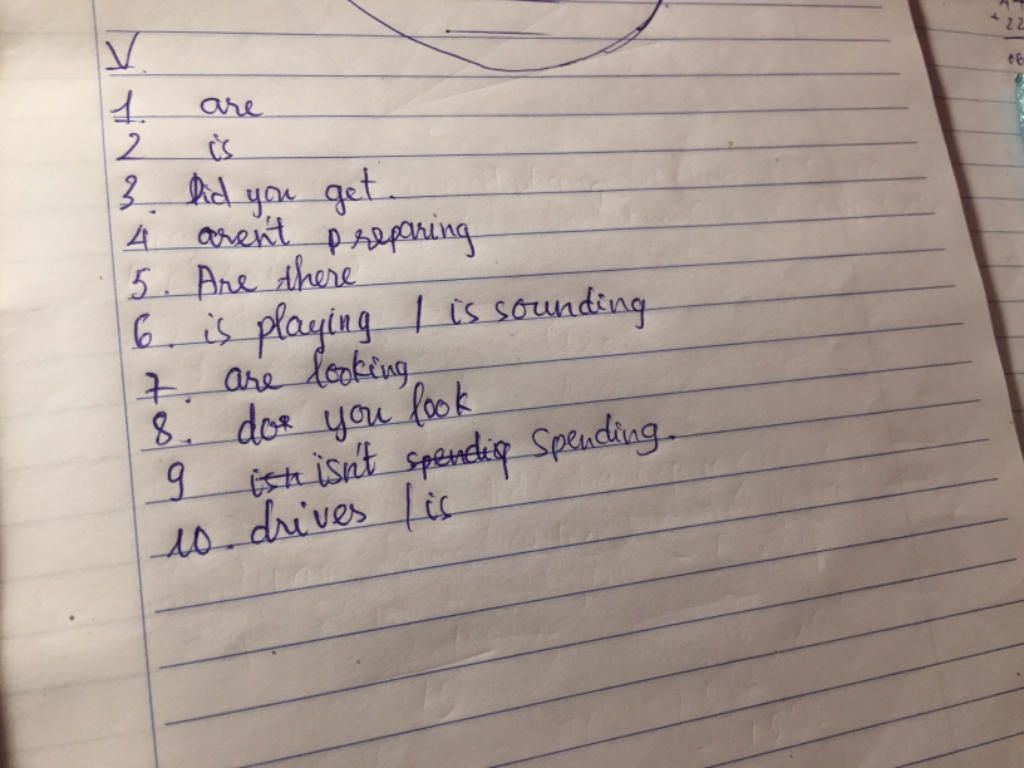 V.
1 are
2 is
3. Did you get.
4 aren't preparing
5. Are there
6. is playing / is sounding
7. are looking
8. do you look
9 isn't spending.
10. drives / is
+ 22